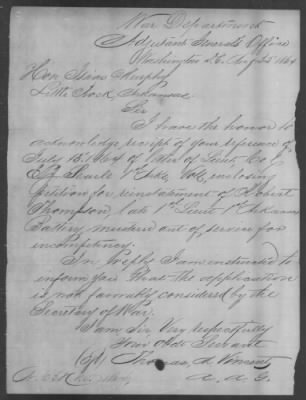 War Department
Adjutant General's Office
Washington D.C. Aug 5" 1864
Hon Isaac Murphy
Little Rock, Arkansas
Sir
I have the honor to
acknowledge receipt of your reference of
July 15" 1864 of letter of Lieut Col
E. J. Searle 1st Ark. Vols, enclosing
petition for reinstatement of Robert
Thompson, late 1st Lieut 1st Arkansas
Battery mustered out of service for
incompetency.
In reply I am instructed to
inform you that the application
is not favorably considered by the
Secretary of War.
I am Sir Very respectfully
Your Obt Servant
Thomas M Vincent
A. A. G.